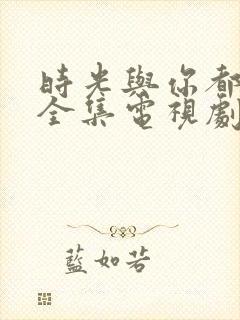 時光與你都
全集電視劇
藍如若